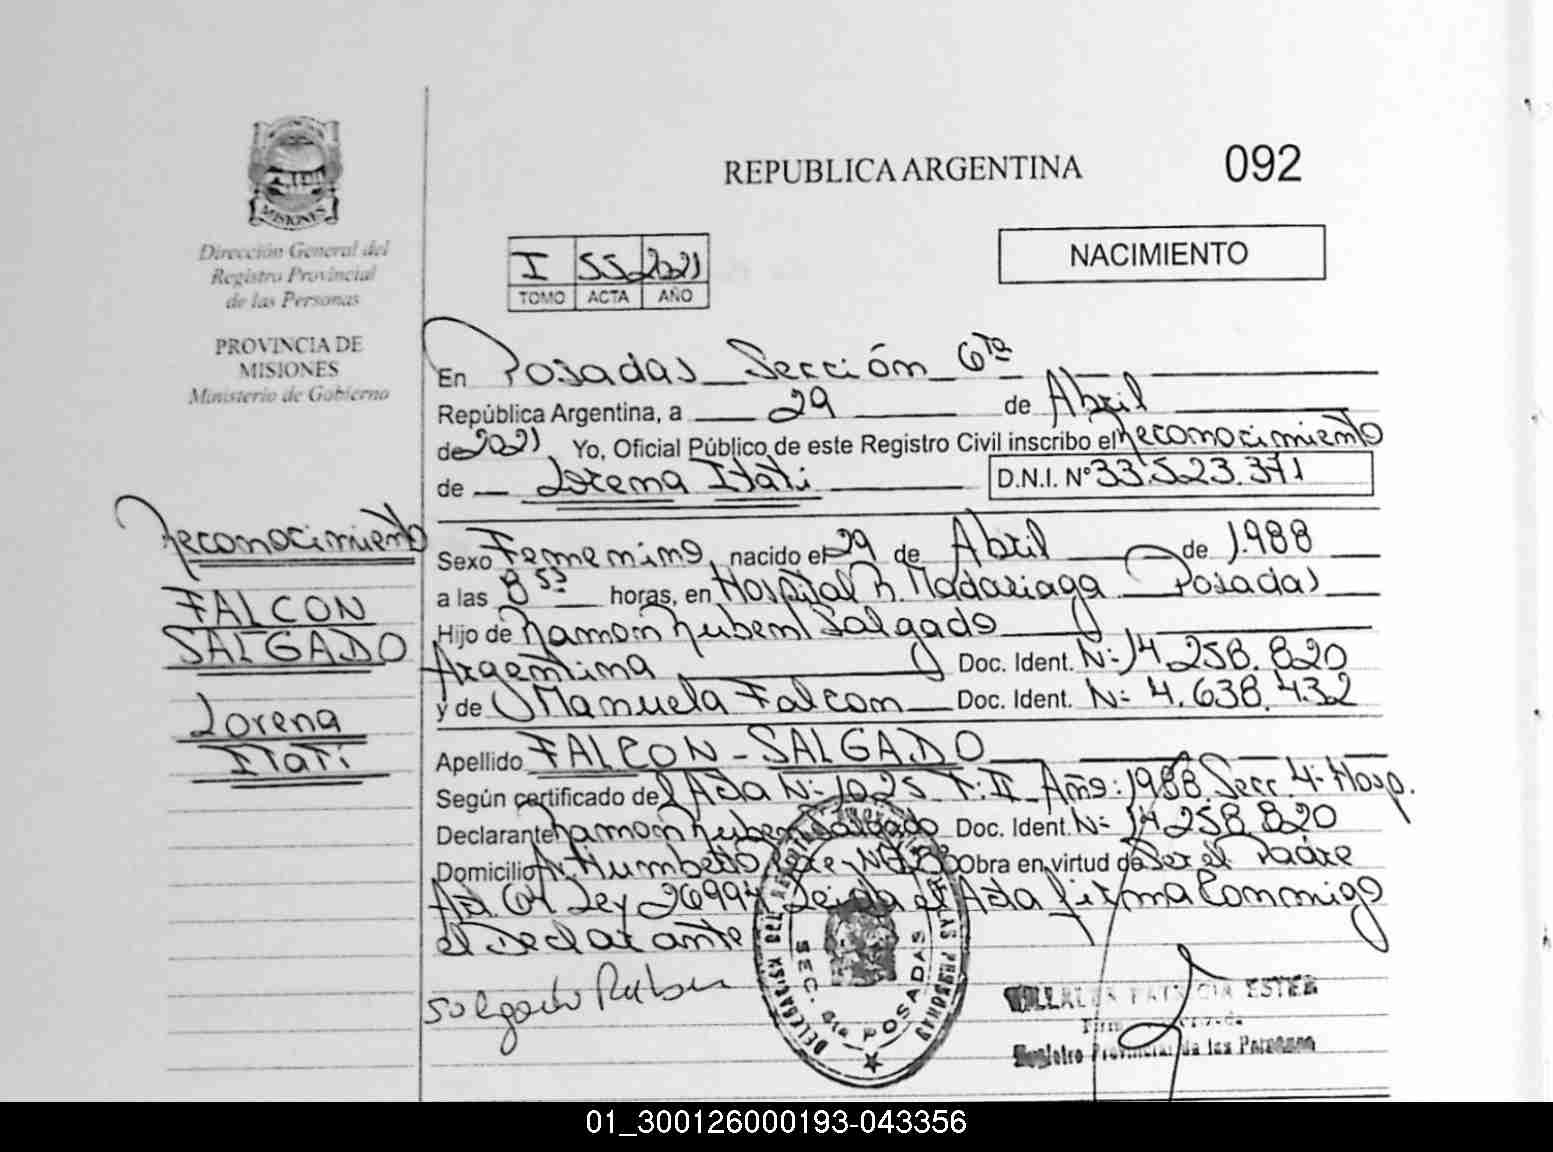 REPUBLICA ARGENTINA
092
MISIONES
Dirección General del
Registro Provincial
de las Personas
PROVINCIA DE
MISIONES
Ministerio de Gobierno
I 55 2021
TOMO ACTA AÑO
NACIMIENTO
En Posadas Sección 6ta
República Argentina, a 29 de Abril
de 2021 Yo, Oficial Público de este Registro Civil inscribo el Reconocimiento
de Lorena Itati D.N.I. N° 33.523.371
Reconocimiento
FALCON
SALGADO
Lorena
Itati
Sexo Femenino nacido el 29 de Abril de 1.988
a las 8 55 horas, en Hospital R. Madariaga Posadas
Hijo de Ramon Ruben Salgado
Argentina Doc. Ident. N: 14.258.820
y de Manuela Falcon Doc. Ident. N: 4.638.432
Apellido FALCON - SALGADO
Según certificado de Acta N: 1025 T: II Año: 1988 Secc. 4: Hosp.
Declarante Ramon Ruben Salgado Doc. Ident. N: 14.258.820
Domicilio Av. Humberto Obra en virtud de Ser el Padre
Art. 64 Ley 26994 Leida el Acta firma Conmigo
el Declarante
Salgado Ruben
SEC. 6ta POSADAS
VILLALBA PATRICIA ESTER
Registro Provincial de las Personas
01_300126000193-043356